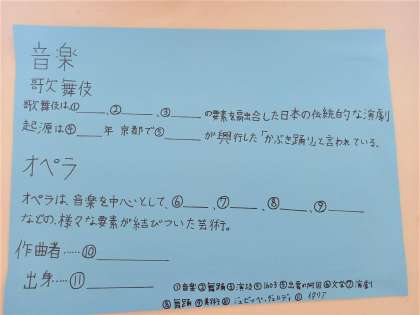 音楽
歌舞伎
歌舞伎は、①____、②____、③____の要素を融合した日本の伝統的な演劇
起源は④____年 京都で⑤____が興行した「かぶき踊り」と言われている。
オペラ
オペラは、音楽を中心として、⑥____、⑦____、⑧____、⑨____
などの、様々な要素が結びついた芸術。
作曲者……⑩________
出身……⑪________
①音楽②舞踊③演技④1603⑤出雲の阿国⑥文学⑦演劇
⑧舞踊⑨美術⑩ジュゼッペ・ヴェルディ⑪イタリア